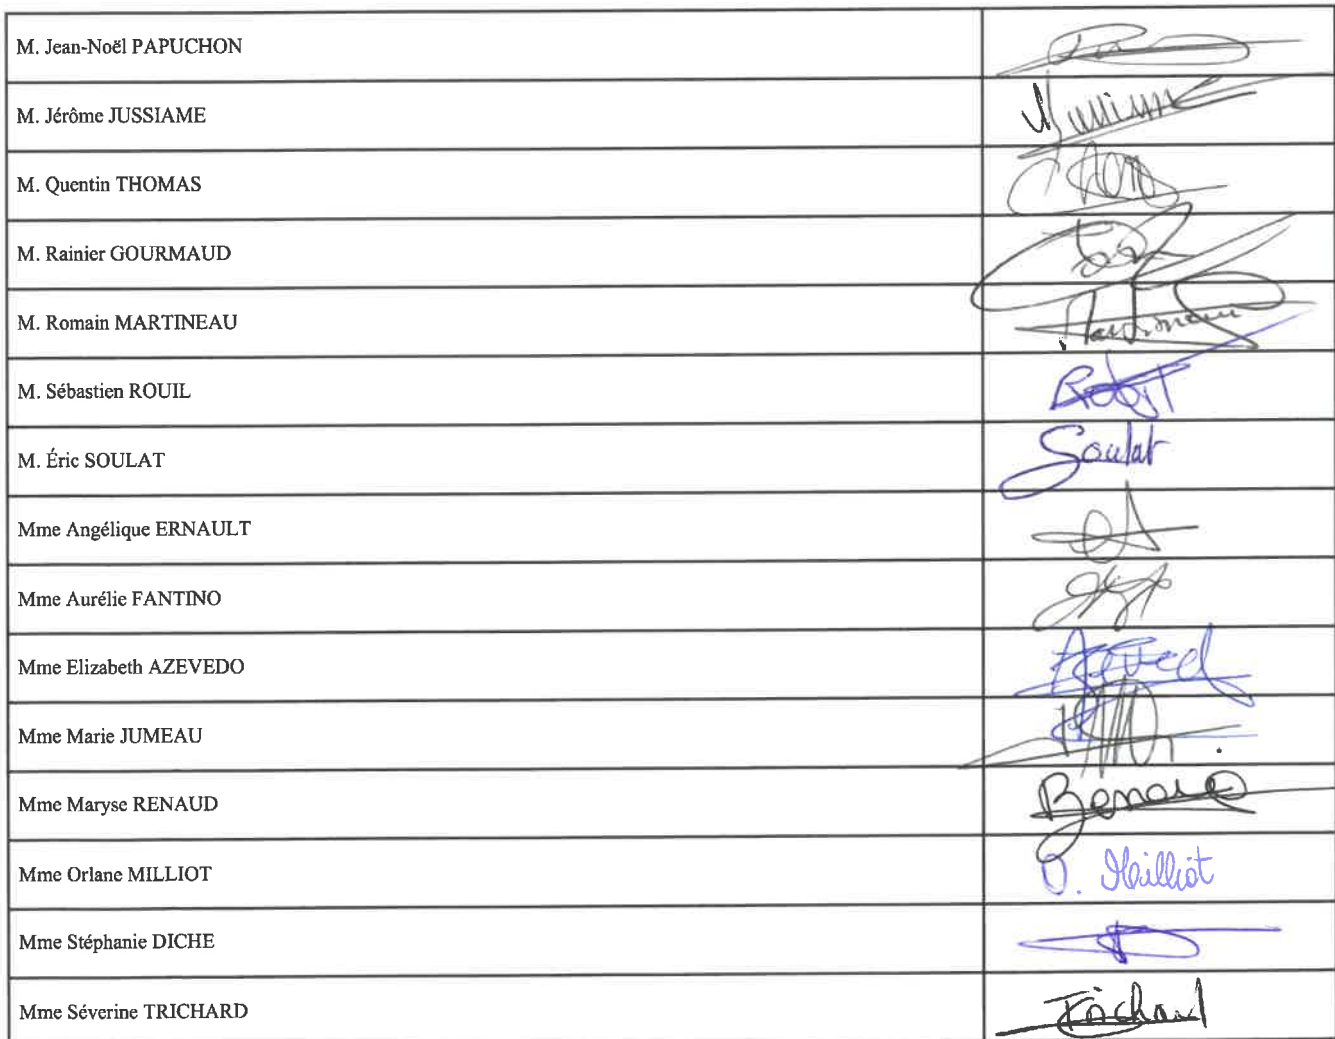 M. Jean-Noël PAPUCHON
M. Jérôme JUSSIAME
M. Quentin THOMAS
M. Rainier GOURMAUD
M. Romain MARTINEAU
M. Sébastien ROUIL
M. Éric SOULAT Soulat
Mme Angélique ERNAULT
Mme Aurélie FANTINO
Mme Elizabeth AZEVEDO
Mme Marie JUMEAU
Mme Maryse RENAUD
Mme Orlane MILLIOT O. Milliot
Mme Stéphanie DICHE
Mme Séverine TRICHARD Trichard